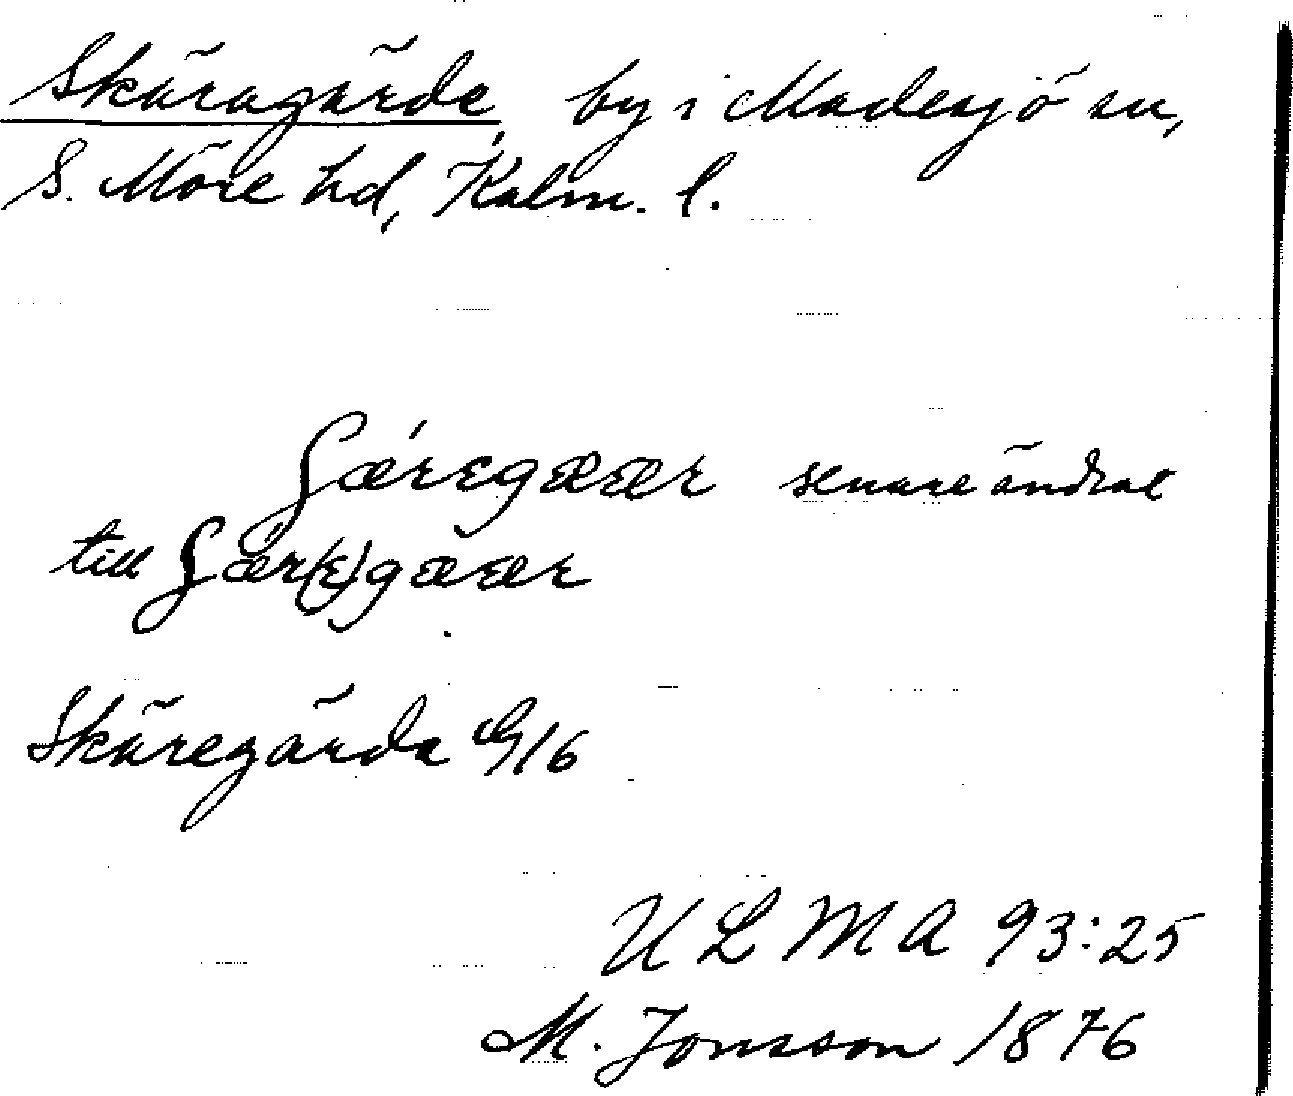 Skäragärde, by i Madesjö sn,
S. Möre hd, Kalm. l.
ʃǽrɛgææɛ senare ändrat
till ʃær(ɛ)gææɛ
Skäregärda G16
ULMA 93:25
M. Jonsson 1876